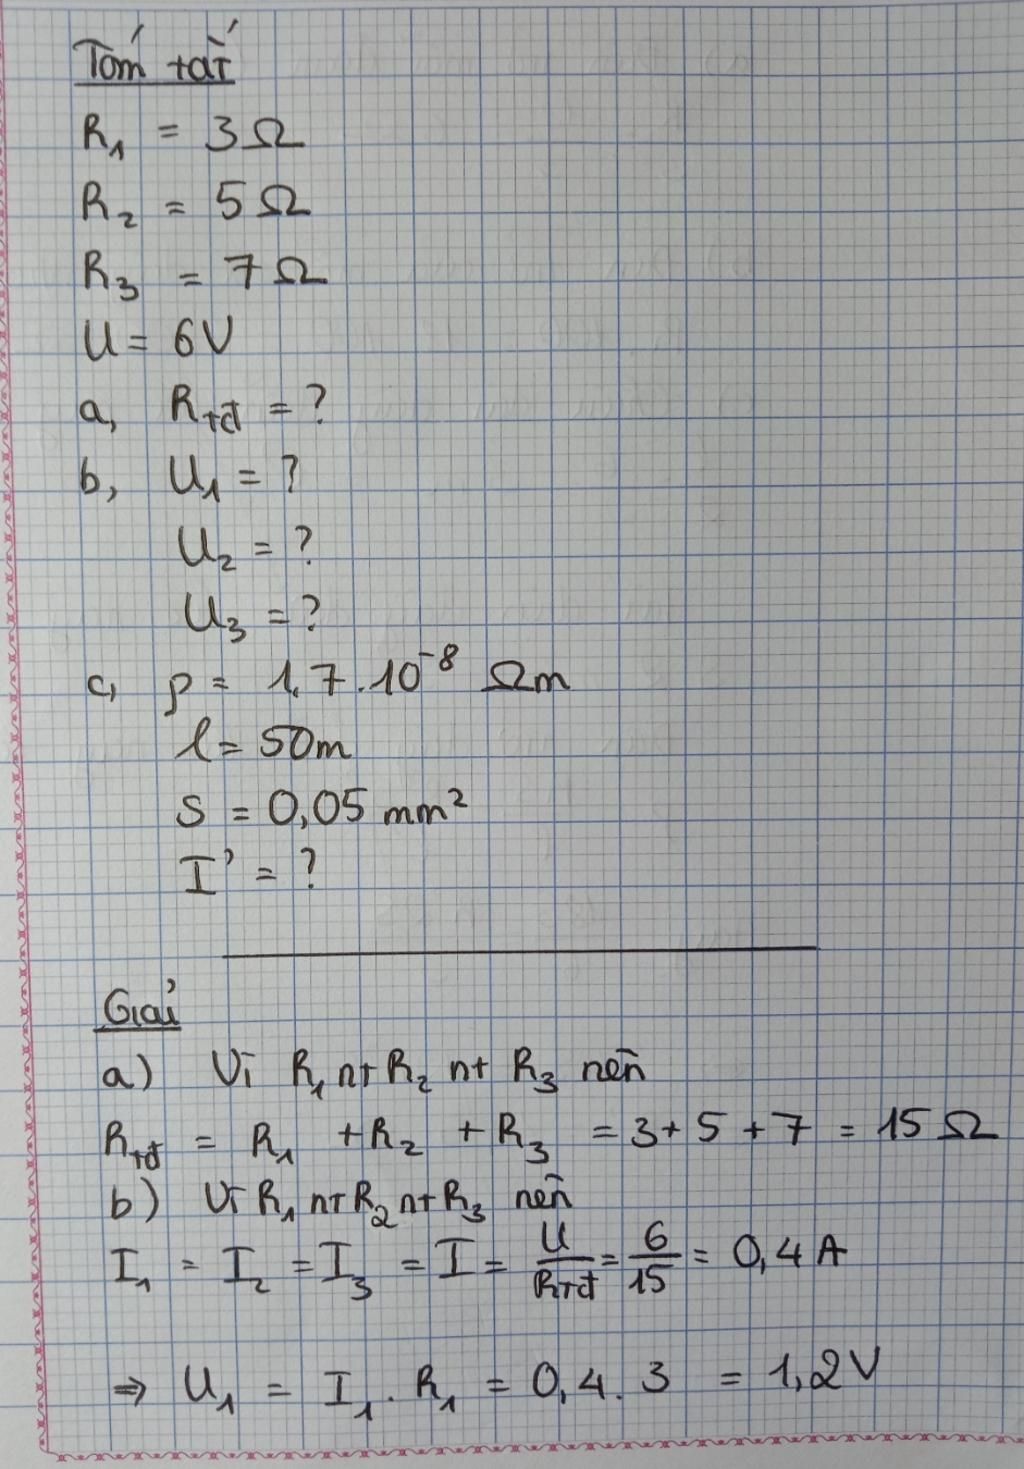 Tóm tắt
R₁ = 3Ω
R₂ = 5Ω
R₃ = 7Ω
U = 6V
a, Rtđ = ?
b, U₁ = ?
U₂ = ?
U₃ = ?
c, ρ = 1,7.10⁻⁸ Ωm
l = 50m
S = 0,05 mm²
I' = ?
Giải
a) Vì R₁ nt R₂ nt R₃ nên
Rtđ = R₁ + R₂ + R₃ = 3 + 5 + 7 = 15 Ω
b) Vì R₁ nt R₂ nt R₃ nên
I₁ = I₂ = I₃ = I = U/Rtđ = 6/15 = 0,4 A
⇒ U₁ = I₁ . R₁ = 0,4 . 3 = 1,2V